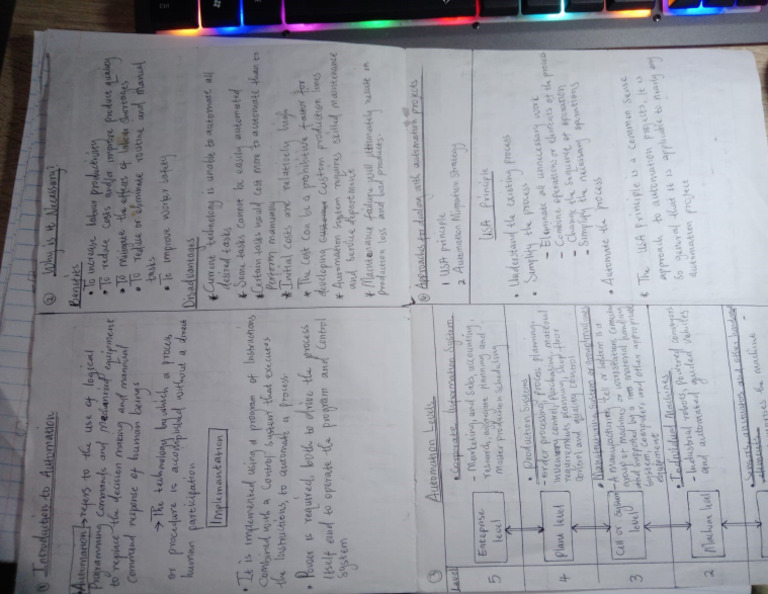 ① Introduction to Automation
Automation → refers to the use of logical
Programming Commands and Mechanized equipment
to replace the decision making and manual
Command response of human beings
→ The technology by which a process
or procedure is accomplished without a direct
human participation
Implementation
• It is implemented using a program of Instructions
Combined with a Control System that executes
the Instructions, to automate a process
• Power is required, both to drive the process
itself and to operate the program and Control
System
② Why is it Necessary?
Benefits
• To increase labor productivity
• To reduce costs and/or improve product quality
• To mitigate the effects of labor shortages
• To reduce or eliminate routine and manual
tasks
• To improve worker safety
Disadvantages
* Current technology is unable to automate all
desired tasks
* Some tasks cannot be easily automated
* Certain tasks would cost more to automate than to
Perform manually
* Initial costs are relatively high
* The cost can be a prohibitive factor for
developing Custom production lines
* Automation System requires skilled maintenance
and service departments
* Maintenance failure will ultimately result in
production loss and bad produces.
③ Automation Levels
Level
5
Enterprise
level
• Corporate Information System
- Marketing, and Sales accounting,
research, aggregate planning and
Master production scheduling
4
Plane level
• Production Systems
- Order processing, process planning,
inventory control, purchasing, material
requirements planning, shop floor
Control and quality control
3
Cell or System
level
- A manufacturing cell or system is a
group of machines or workstations connected
and supported by a material handling
System, Computer and other appropriate
equipment
2
Machine level
• Individual Machines
- Industrial robots, powered conveyors
and automated guided vehicles
④ Approaches for dealing with automation projects
1 USA principle
2 Automation Migration Strategy
USA Principle
• Understand the existing process
• Simplify the process
- Eliminate all unnecessary work
- Combine operations or elements of the process
- Change the Sequence of operation
- Simplify the necessary operations
• Automate the process
* The USA principle is a common sense
approach to automation projects, it is
So general that it is applicable to nearly any
automation project